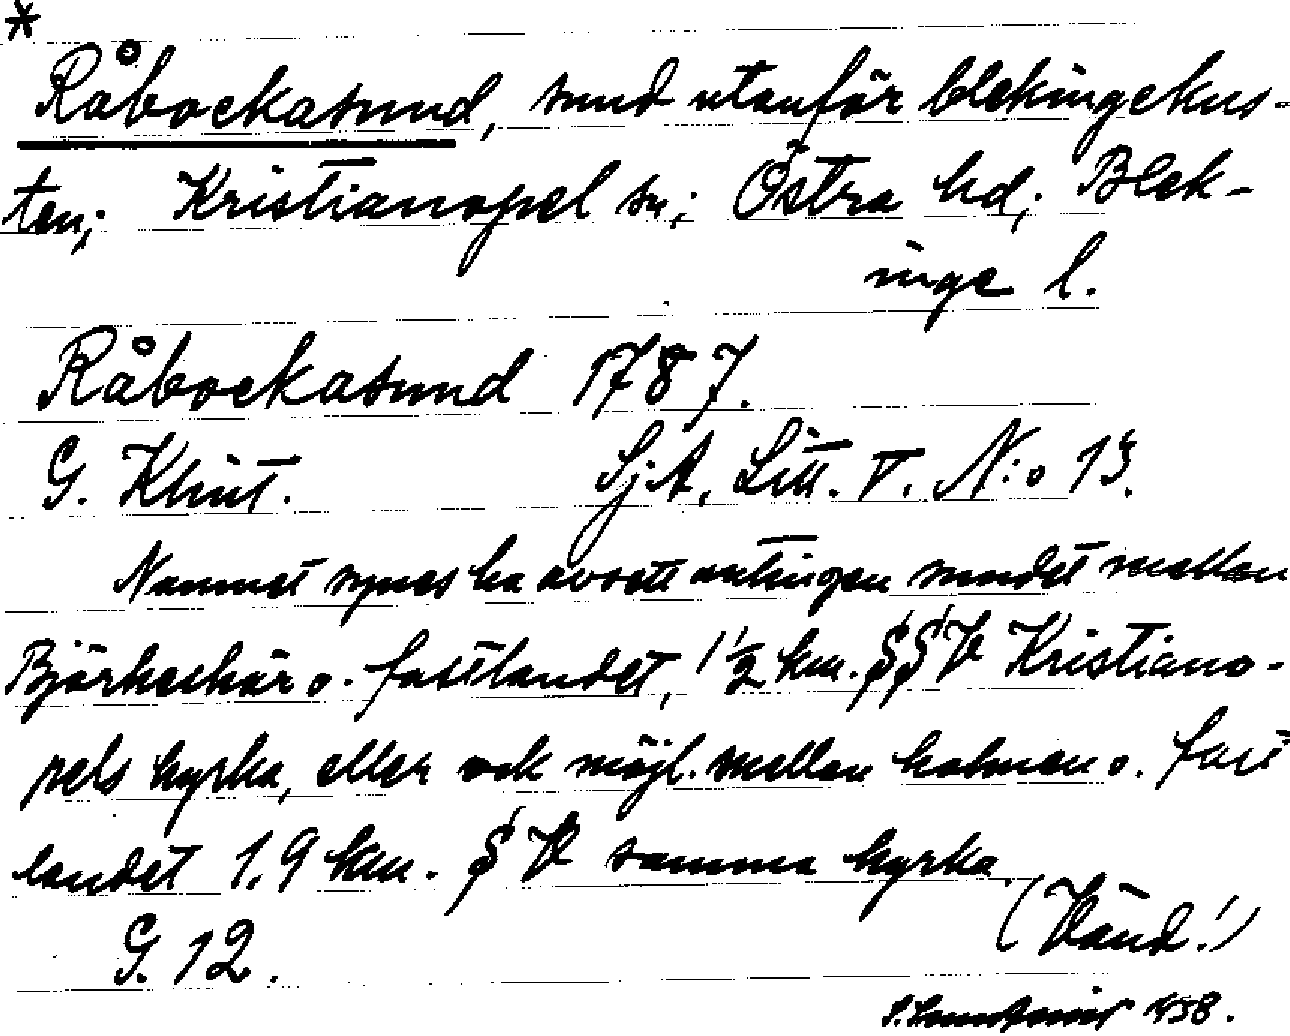 *
Råbockasund, sund utanför blekingekus-
ten; Kristianopel sn; Östra hd; Blek-
inge l.
Råbockasund 1787.
G. Klint. SjA, Litt. V. N:o 13.
Namnet synes ha avsett antingen sundet mellan
Björkeskär o. fastlandet, 1½ km. SSV Kristiano-
pels kyrka, eller ock möjl. mellan holmen o. fast
landet 1,9 km. SV samma kyrka.
G. 12. (Vänd!)
1938.